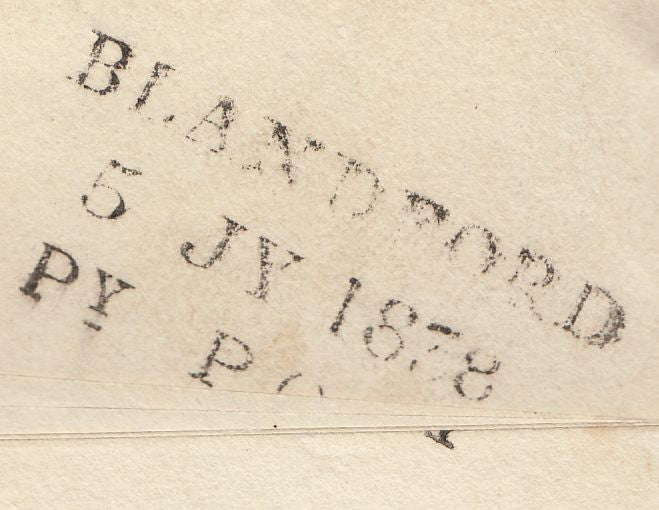 BLANDFORD
5 JY 1838
PY P